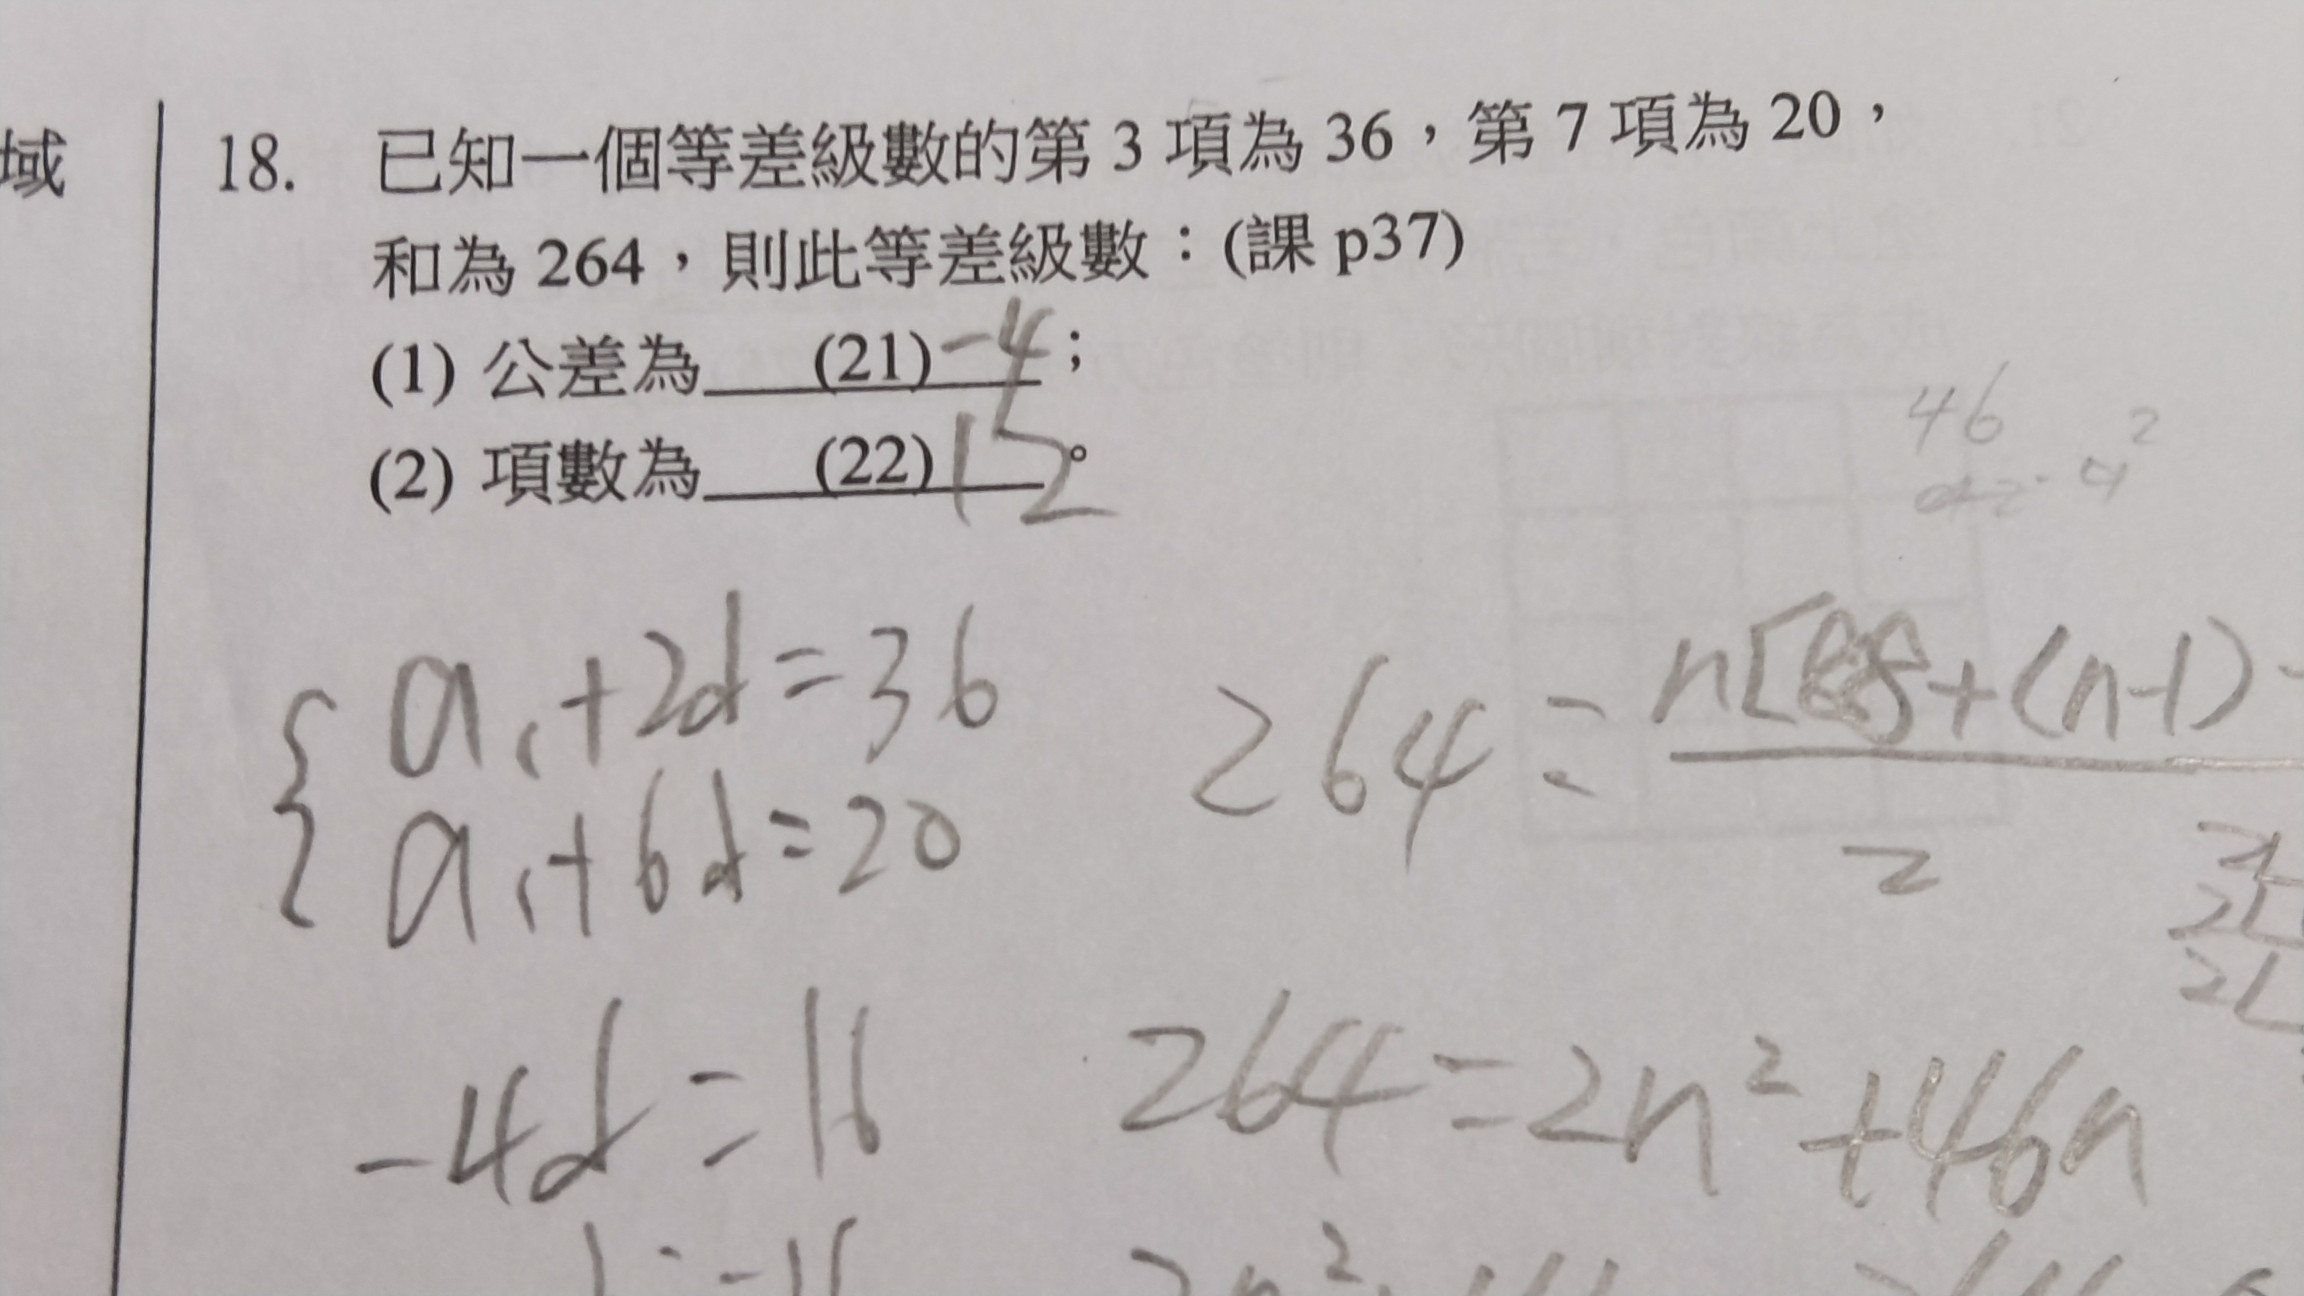 域
18. 已知一個等差級數的第 3 項為 36，第 7 項為 20，
和為 264，則此等差級數：(課 p37)
(1) 公差為 (21) -4；
(2) 項數為 (22) 12。
46
2
a₁+2d=36
a₁+6d=20
264=n[88+(n-1)-
2
-4d=16
264=2n²+46n